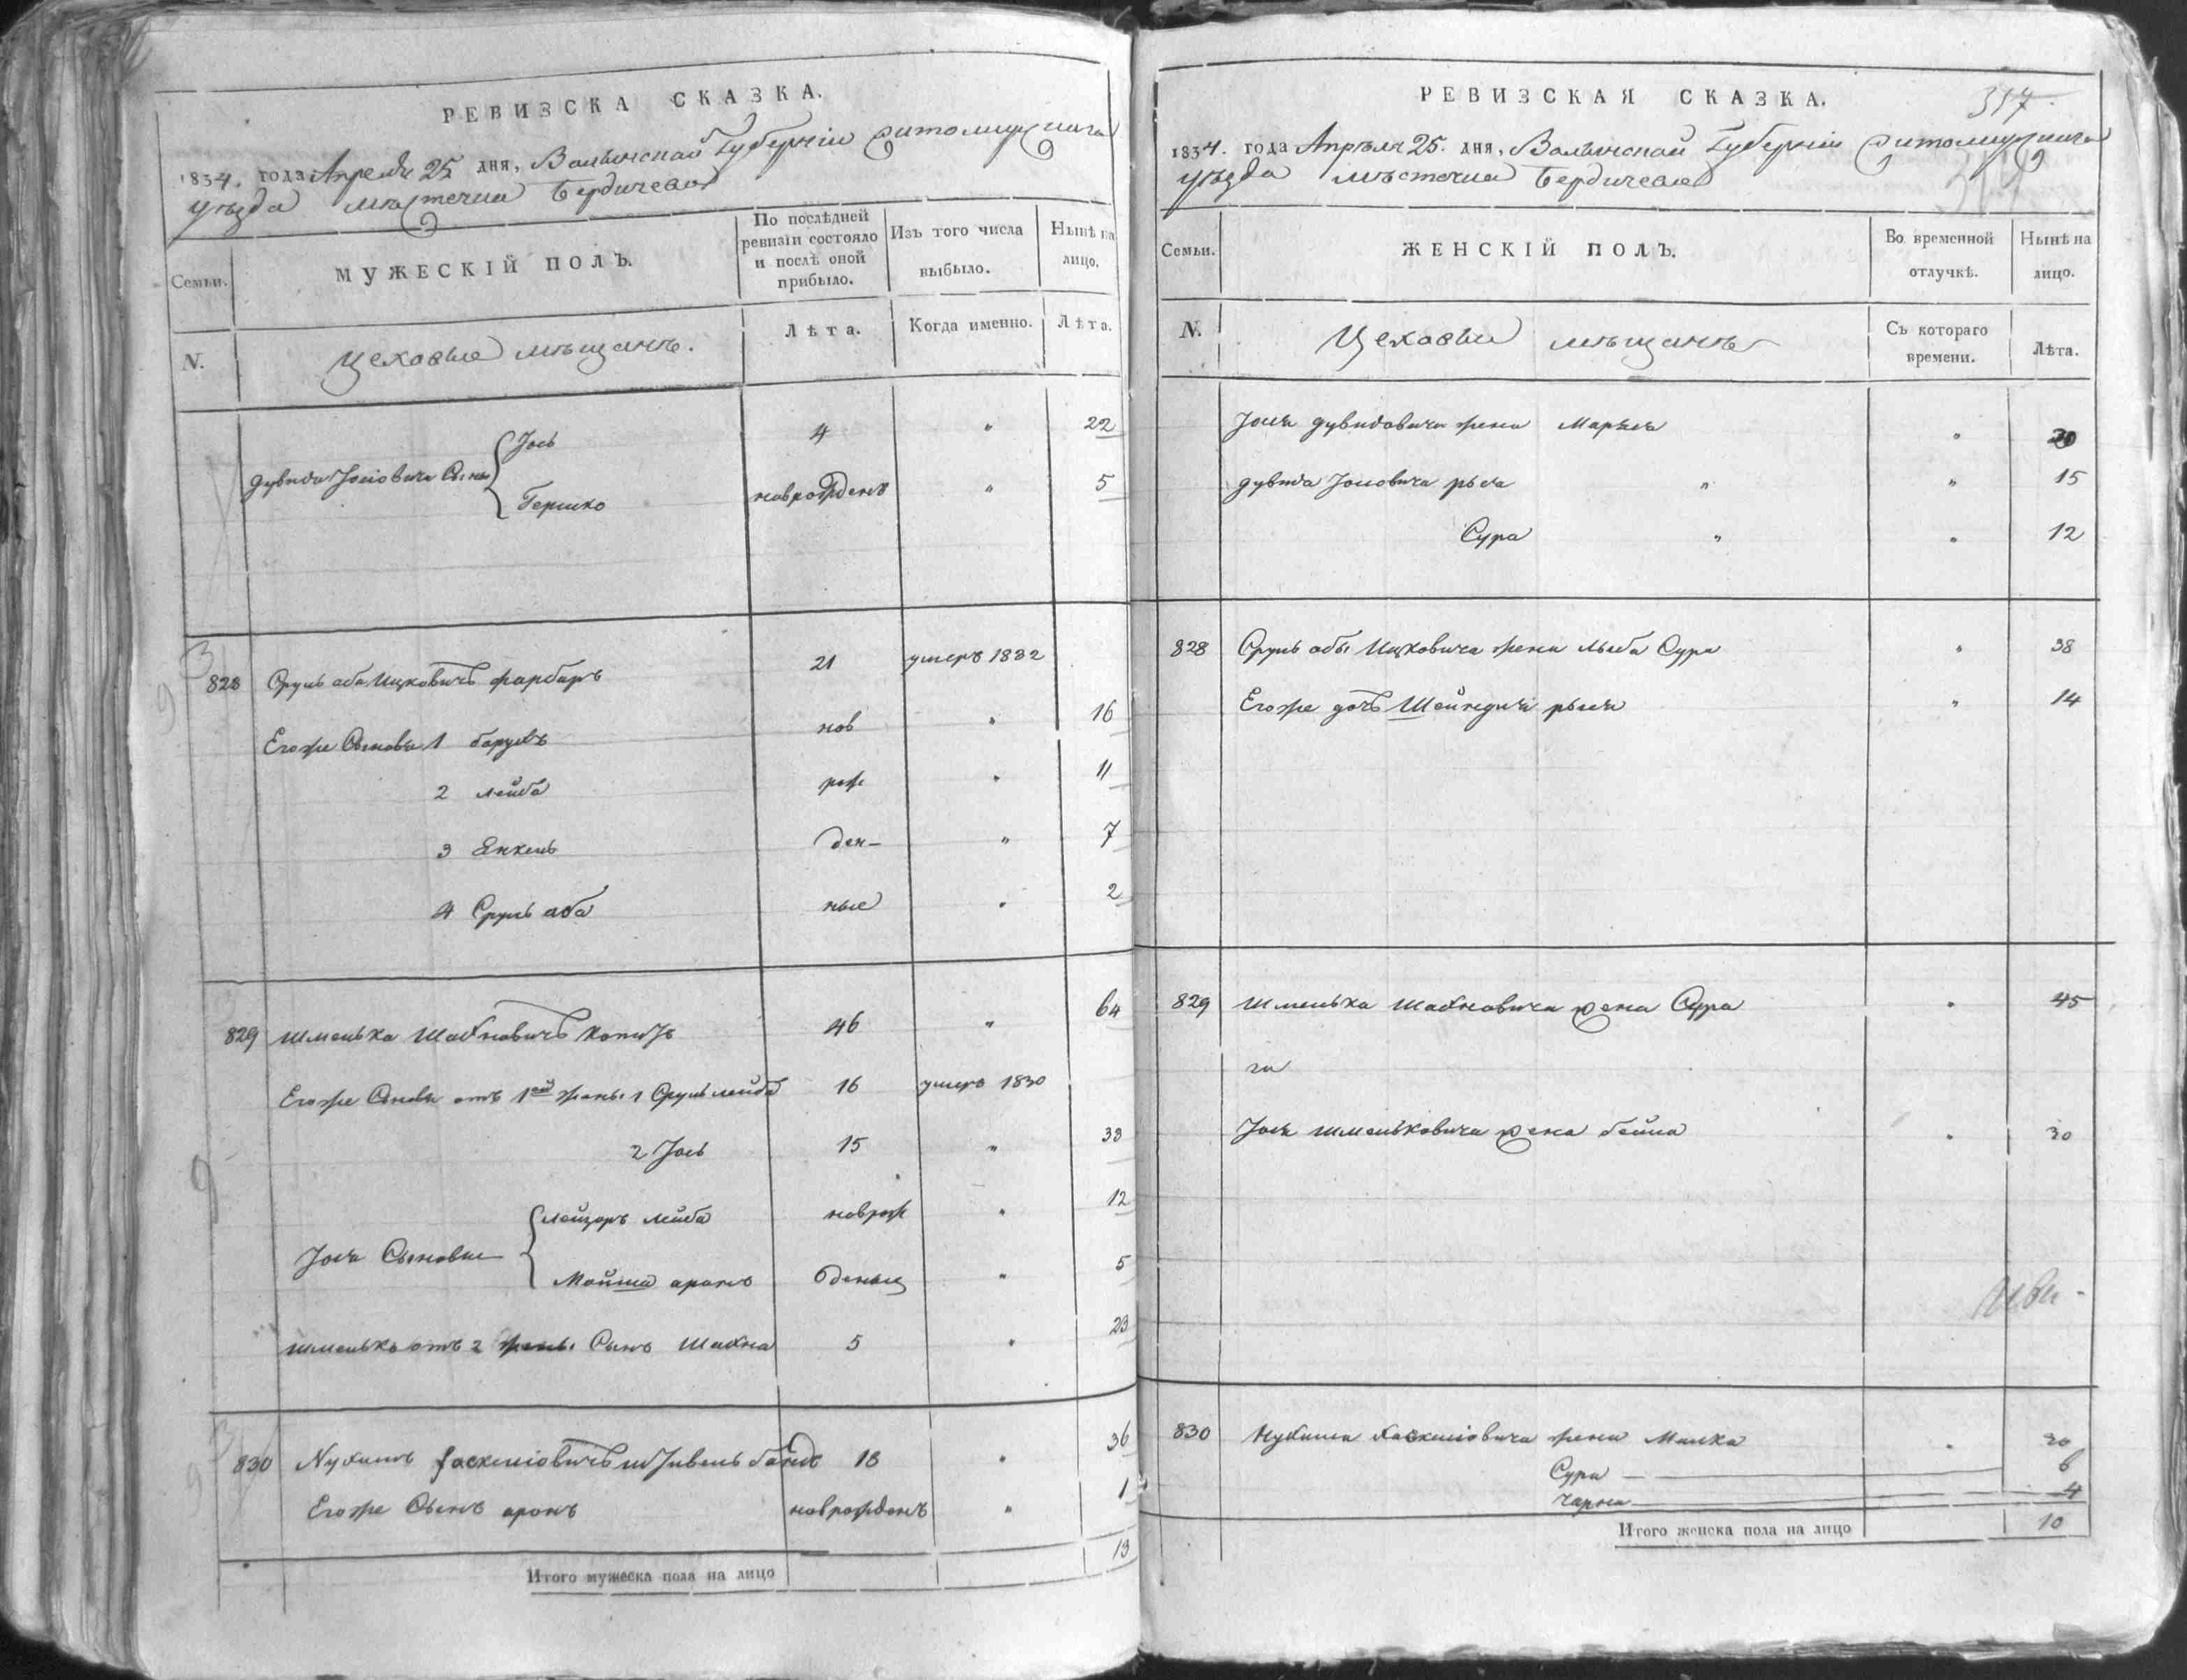 РЕВИЗСКА СКАЗКА.
1834. года Апреля 25 дня, Волынской Губерніи Житомирскаго
уѣзда мѣстечка Бердичева
Семьи.
МУЖЕСКІЙ ПОЛЪ.
По послѣдней ревизіи состояло и послѣ оной прибыло.
Изъ того числа выбыло.
Нынѣ на лицо.
N.
Цеховые мѣщане.
Лѣта.
Когда именно.
Лѣта.
Іось 4 " 22
Дувида Іосіовича Сыны
Гершко новрожденъ " 5
828 Сруль аба Ицковичъ фарбаръ 21 умеръ 1832
Его же Сыновья 1 барухъ нов " 16
2 лейба рож " 11
3 Янкель ден- " 7
4 Сруль аба ные " 2
829 Шмелька Шахновичъ 46 " 64
Его же Сыновья отъ 1ой жены 1 Сруль лейба 16 умеръ 1830
2 Іось 15 " 33
лейзоръ лейба новрож " 12
Іося Сыновья
Мойша аронъ денын " 5
Шмелька отъ 2 жены Сынъ Шахна 5 " 23
830 Нухимъ Хаскеліовичъ 18 " 36
Его же Сынъ аронъ новрожденъ " 1
Итого мужеска пола на лицо 13
РЕВИЗСКАЯ СКАЗКА.
317.
1834. года Апрѣля 25. дня, Волынской Губерніи Житомирскаго
уѣзда мѣстечка Бердичева
Семьи.
ЖЕНСКІЙ ПОЛЪ.
Во временной отлучкѣ.
Нынѣ на лицо.
N.
Цеховые мѣщане
Съ котораго времени.
Лѣта.
Іося дувидовича жена Марьяся " 20
дувида Іосіовича рыся " " 15
Сура " " 12
828 Сруль абы Ицковича жена Сура " 38
Его же дочь Шейндля рыся " 14
829 Шмелька Шахновича жена Сура " 45
Іося шмельковича жена бейла " 30
830 Нухима Хаскеліовича жена Малка " 30
Сура 6
Чарна 4
Итого женска пола на лицо 10